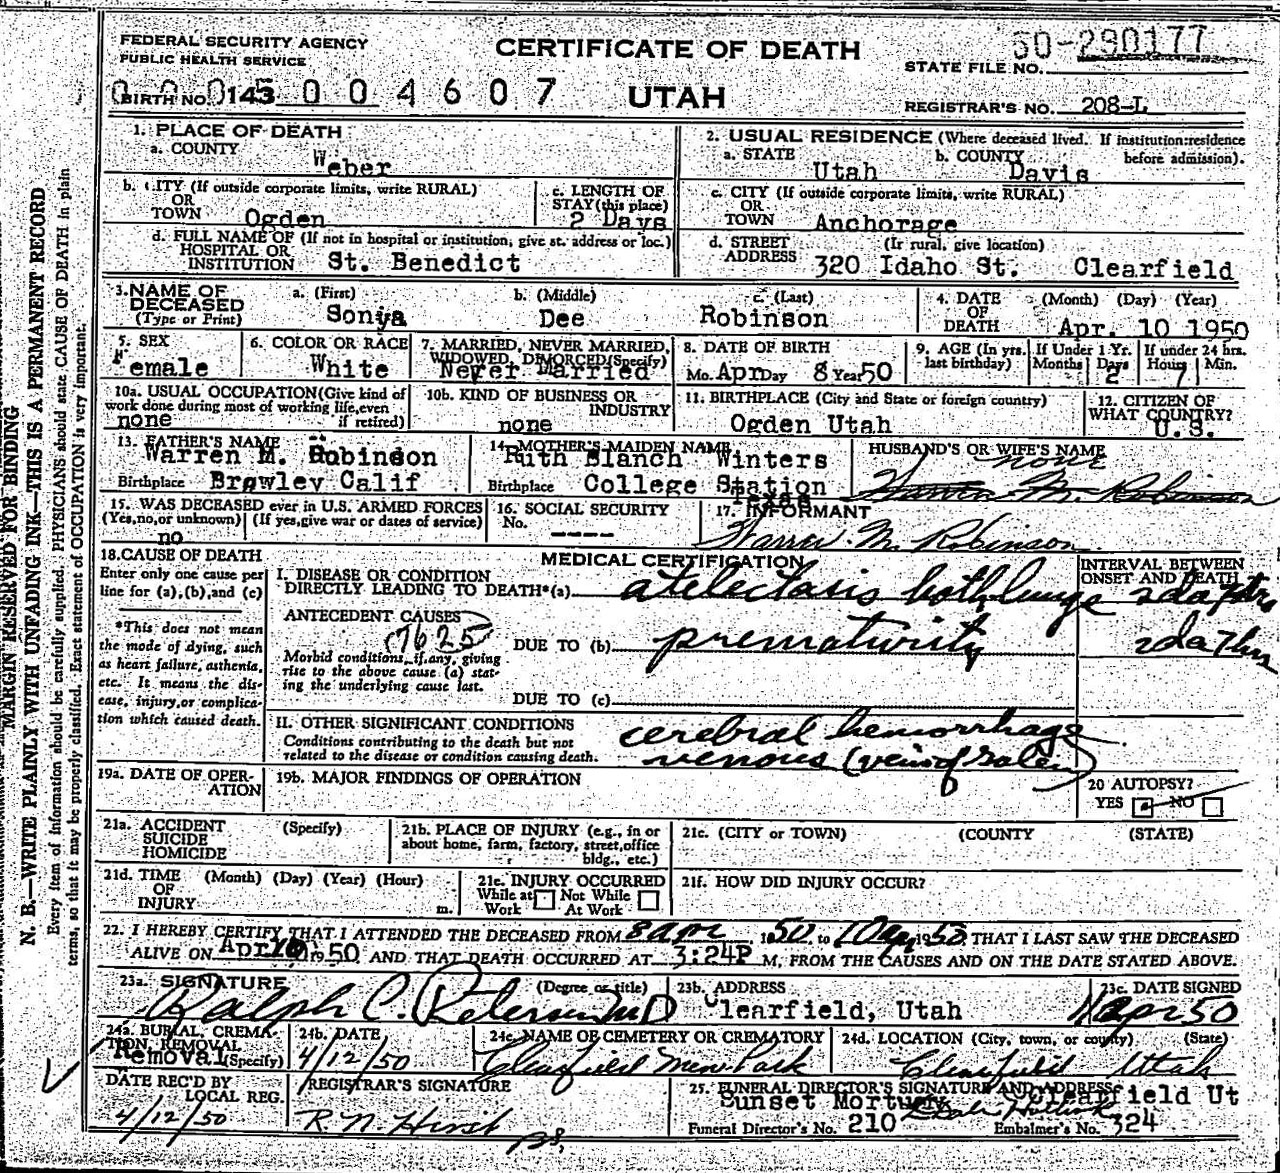 FEDERAL SECURITY AGENCY
PUBLIC HEALTH SERVICE
CERTIFICATE OF DEATH
UTAH
50-290177
STATE FILE NO.
BIRTH NO. 143
0005004607
REGISTRAR'S NO. 208-L
1. PLACE OF DEATH
a. COUNTY Weber
b. CITY (If outside corporate limits, write RURAL) OR TOWN Ogden
c. LENGTH OF STAY (this place) 2 Days
d. FULL NAME OF (If not in hospital or institution, give st. address or loc.)
HOSPITAL OR INSTITUTION St. Benedict
2. USUAL RESIDENCE (Where deceased lived. If institution:residence before admission).
a. STATE Utah b. COUNTY Davis
c. CITY (If outside corporate limits, write RURAL) OR TOWN Anchorage
d. STREET ADDRESS (If rural, give location) 320 Idaho St. Clearfield
3. NAME OF DECEASED (Type or Print)
a. (First) Sonya b. (Middle) Dee c. (Last) Robinson
4. DATE OF DEATH (Month) (Day) (Year) Apr. 10 1950
5. SEX Female
6. COLOR OR RACE White
7. MARRIED, NEVER MARRIED, WIDOWED, DIVORCED (Specify) Never Married
8. DATE OF BIRTH Mo. Apr Day 8 Year 50
9. AGE (In yrs. last birthday) If Under 1 Yr. Months Days 2 If under 24 hrs. Hours 7 Min.
10a. USUAL OCCUPATION (Give kind of work done during most of working life, even if retired) none
10b. KIND OF BUSINESS OR INDUSTRY none
11. BIRTHPLACE (City and State or foreign country) Ogden Utah
12. CITIZEN OF WHAT COUNTRY? U.S.
13. FATHER'S NAME Warren M. Robinson
Birthplace Brawley Calif
14. MOTHER'S MAIDEN NAME Ruth Blanch Winters
Birthplace College Station Texas
HUSBAND'S OR WIFE'S NAME none
Warren M. Robinson
15. WAS DECEASED ever in U.S. ARMED FORCES
(Yes, no, or unknown) (If yes, give war or dates of service)
no
16. SOCIAL SECURITY No. ----
17. INFORMANT Warren M. Robinson
18. CAUSE OF DEATH
Enter only one cause per line for (a), (b), and (c)
*This does not mean the mode of dying, such as heart failure, asthenia, etc. It means the disease, injury, or complication which caused death.
MEDICAL CERTIFICATION
INTERVAL BETWEEN ONSET AND DEATH
I. DISEASE OR CONDITION DIRECTLY LEADING TO DEATH*(a) atelectasis both lungs 2da 7hrs
ANTECEDENT CAUSES 7625
Morbid conditions, if any, giving rise to the above cause (a) stating the underlying cause last.
DUE TO (b) prematurity 2da 7hrs
DUE TO (c)
II. OTHER SIGNIFICANT CONDITIONS
Conditions contributing to the death but not related to the disease or condition causing death.
cerebral hemorrhage
venous (vein of Galen)
19a. DATE OF OPERATION
19b. MAJOR FINDINGS OF OPERATION
20 AUTOPSY? YES NO
21a. ACCIDENT SUICIDE HOMICIDE (Specify)
21b. PLACE OF INJURY (e.g., in or about home, farm, factory, street, office bldg., etc.)
21c. (CITY or TOWN) (COUNTY (STATE)
21d. TIME OF INJURY (Month) (Day) (Year) (Hour) m.
21e. INJURY OCCURRED While at Work Not While At Work
21f. HOW DID INJURY OCCUR?
22. I HEREBY CERTIFY THAT I ATTENDED THE DECEASED FROM 8 apr 1950, to 10 apr, 1950 THAT I LAST SAW THE DECEASED
ALIVE ON Apr 10, 1950 AND THAT DEATH OCCURRED AT 3:24P M, FROM THE CAUSES AND ON THE DATE STATED ABOVE.
23a. SIGNATURE (Degree or title) Ralph C. Petersen MD
23b. ADDRESS Clearfield, Utah
23c. DATE SIGNED apr 50
24a. BURIAL, CREMATION, REMOVAL (Specify) Removal
24b. DATE 4/12/50
24c. NAME OF CEMETERY OR CREMATORY Clearfield Mem Park
24d. LOCATION (City, town, or county) (State) Clearfield Utah
DATE REC'D BY LOCAL REG. 4/12/50
REGISTRAR'S SIGNATURE R. N. Hirst
25. FUNERAL DIRECTOR'S SIGNATURE AND ADDRESS
Sunset Mortuary Clearfield Ut
Funeral Director's No. 210 Embalmer's No. 324
MARGIN RESERVED FOR BINDING
N. B.—WRITE PLAINLY WITH UNFADING INK—THIS IS A PERMANENT RECORD
Every item of information should be carefully supplied. PHYSICIANS should state CAUSE OF DEATH in plain
terms, so that it may be properly classified. Exact statement of OCCUPATION is very important.